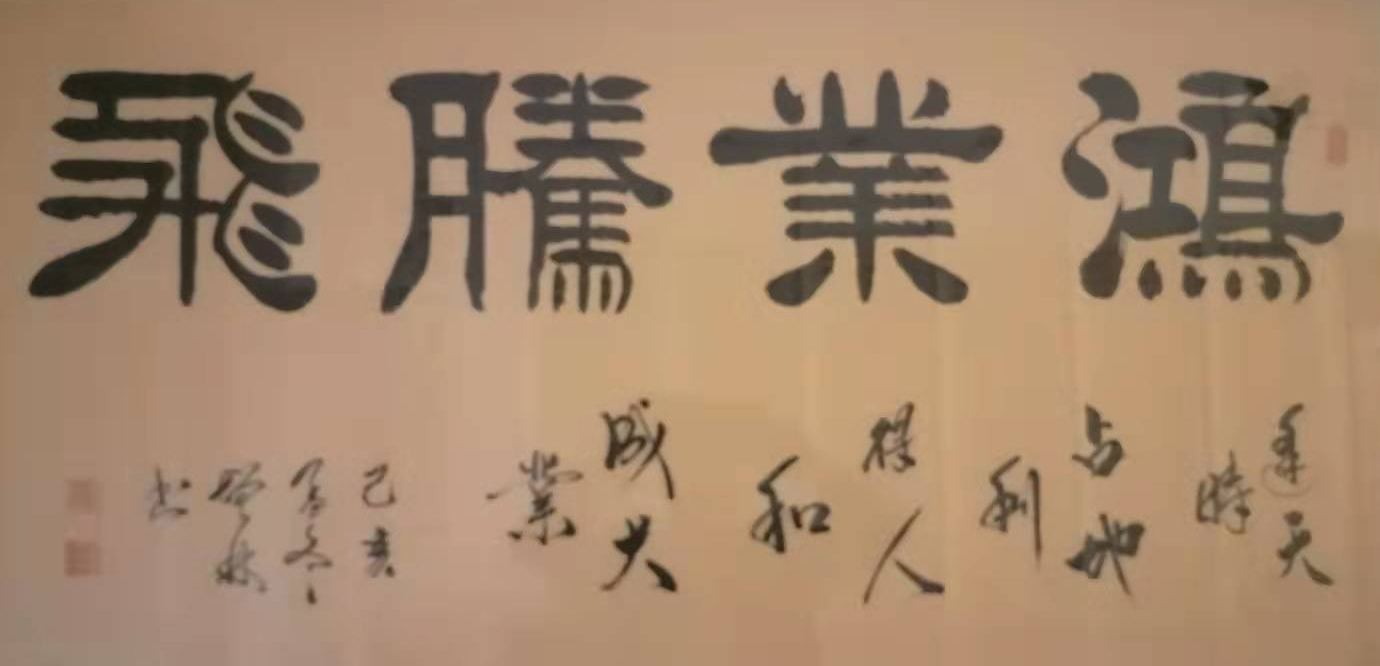 鴻業騰飛
逢天
時
占地
利
得人
和
成大
業
己亥
書